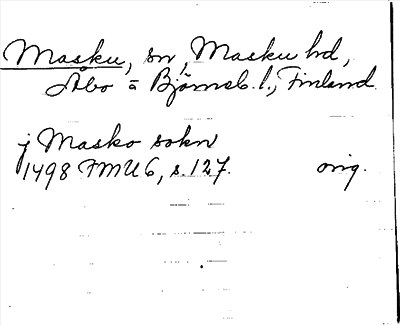 Masku, sn, Masku hd,
Åbo o Björneb. l., Finland.
j Masko sokn
1498 FMU 6, s. 127. orig.